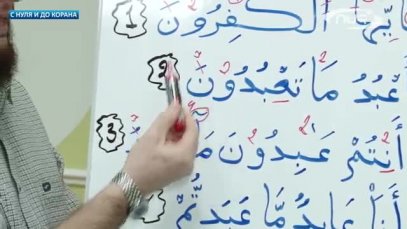 С НУЛЯ И ДО КОРАНА
الْكَفِرُونَ 1
عْبُدُ مَا تَعْبُدُونَ 2
أَنتُمْ عَبِدُونَ مَ 3
أَنَا عَابِدٌ مَّا عَبَدتُّمْ